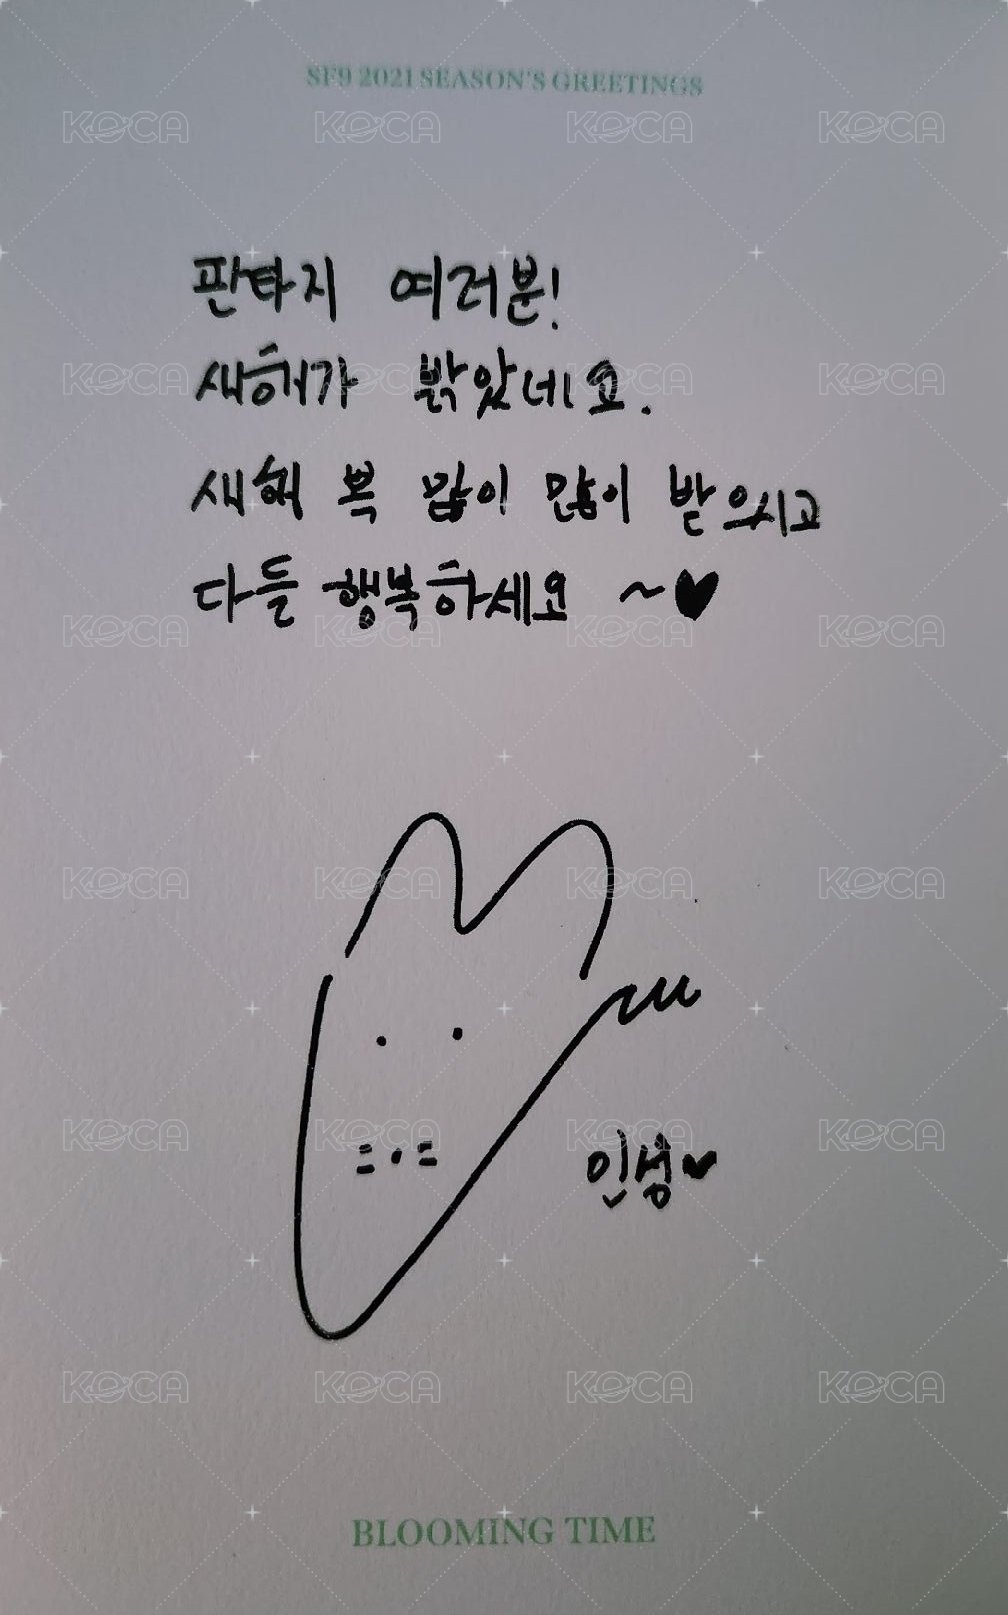 SF9 2021 SEASON'S GREETINGS
판타지 여러분!
새해가 밝았네요.
새해 복 많이 많이 받으시고
다들 행복하세요 ~♥
=.=
인성♥
BLOOMING TIME
KOCA